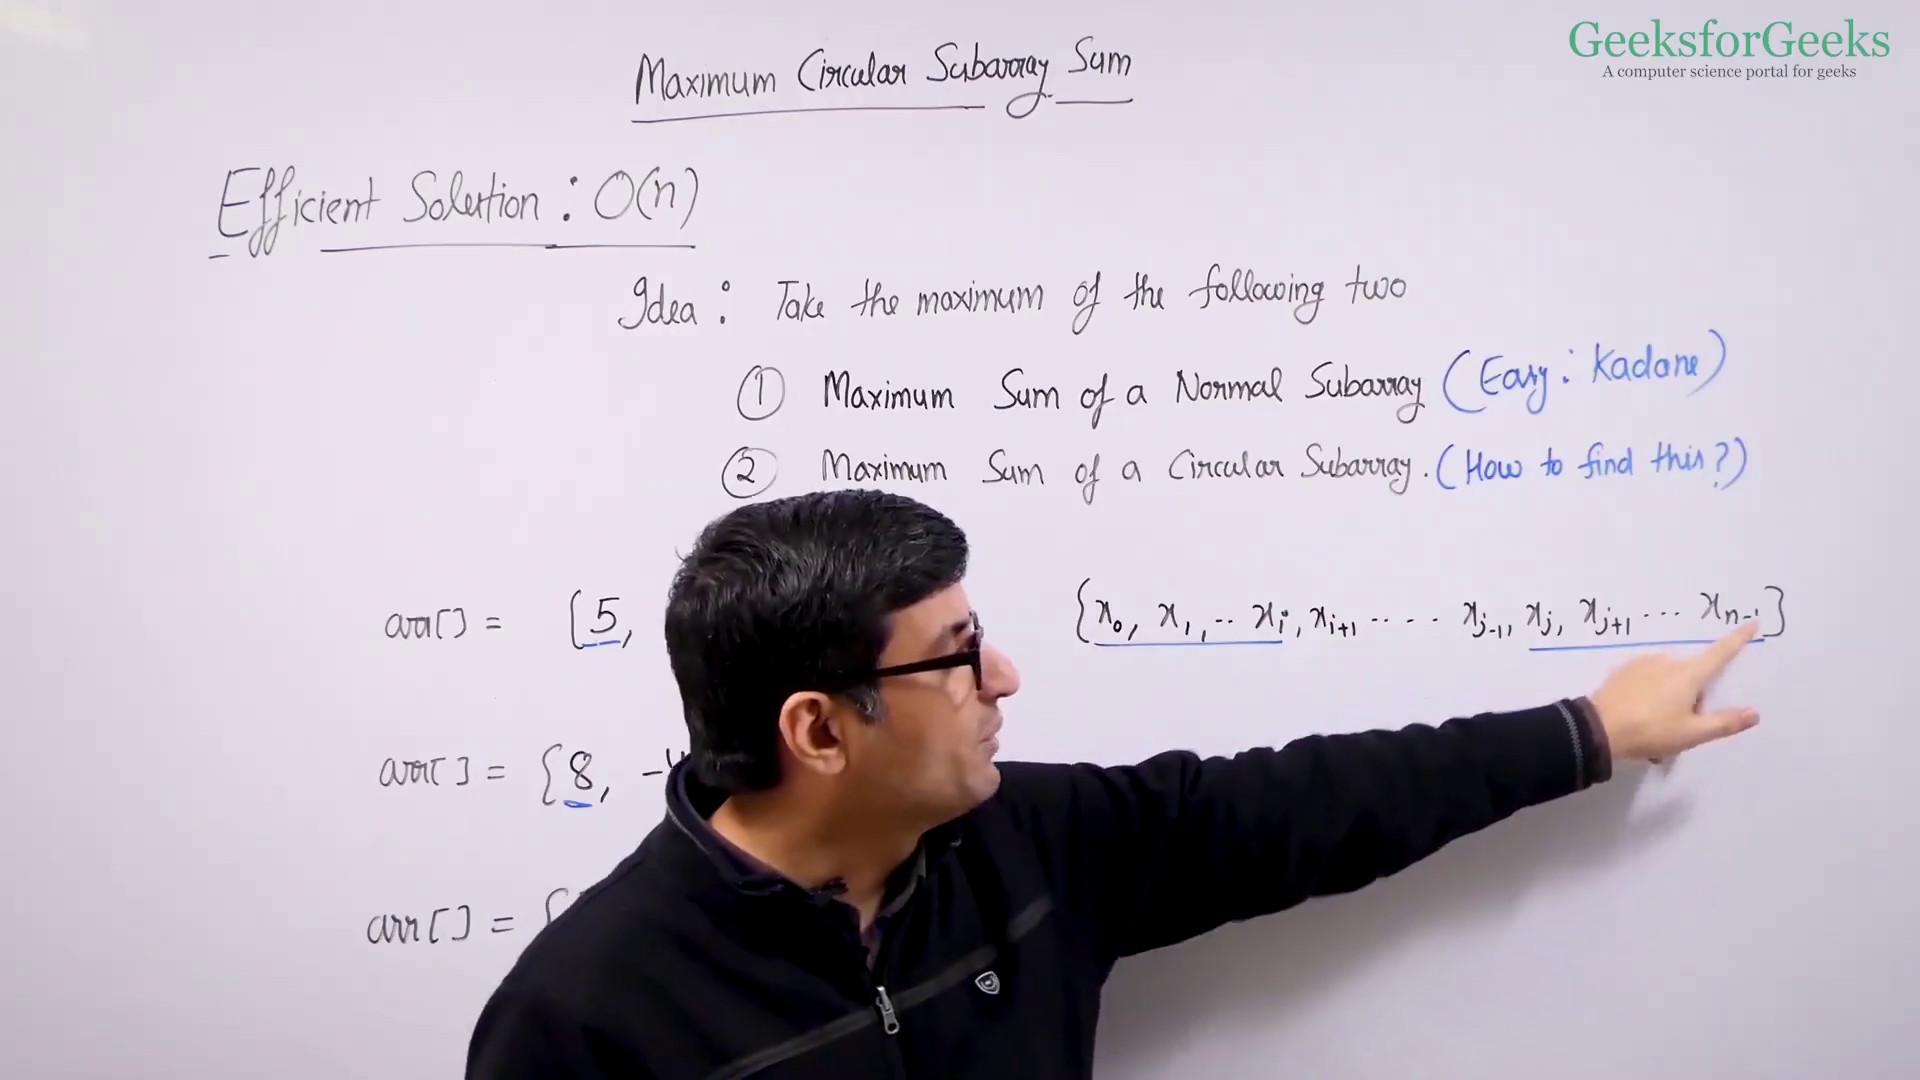 GeeksforGeeks
A computer science portal for geeks
Maximum Circular Subarray Sum
Efficient Solution : O(n)
Idea : Take the maximum of the following two
① Maximum Sum of a Normal Subarray (Easy : Kadane)
② Maximum Sum of a Circular Subarray. (How to find this?)
arr[] = {5,
{x₀, x₁, .. xᵢ, xᵢ₊₁ .... xⱼ₋₁, xⱼ, xⱼ₊₁ ... xₙ₋₁}
arr[] = {8, -4
arr[] = {